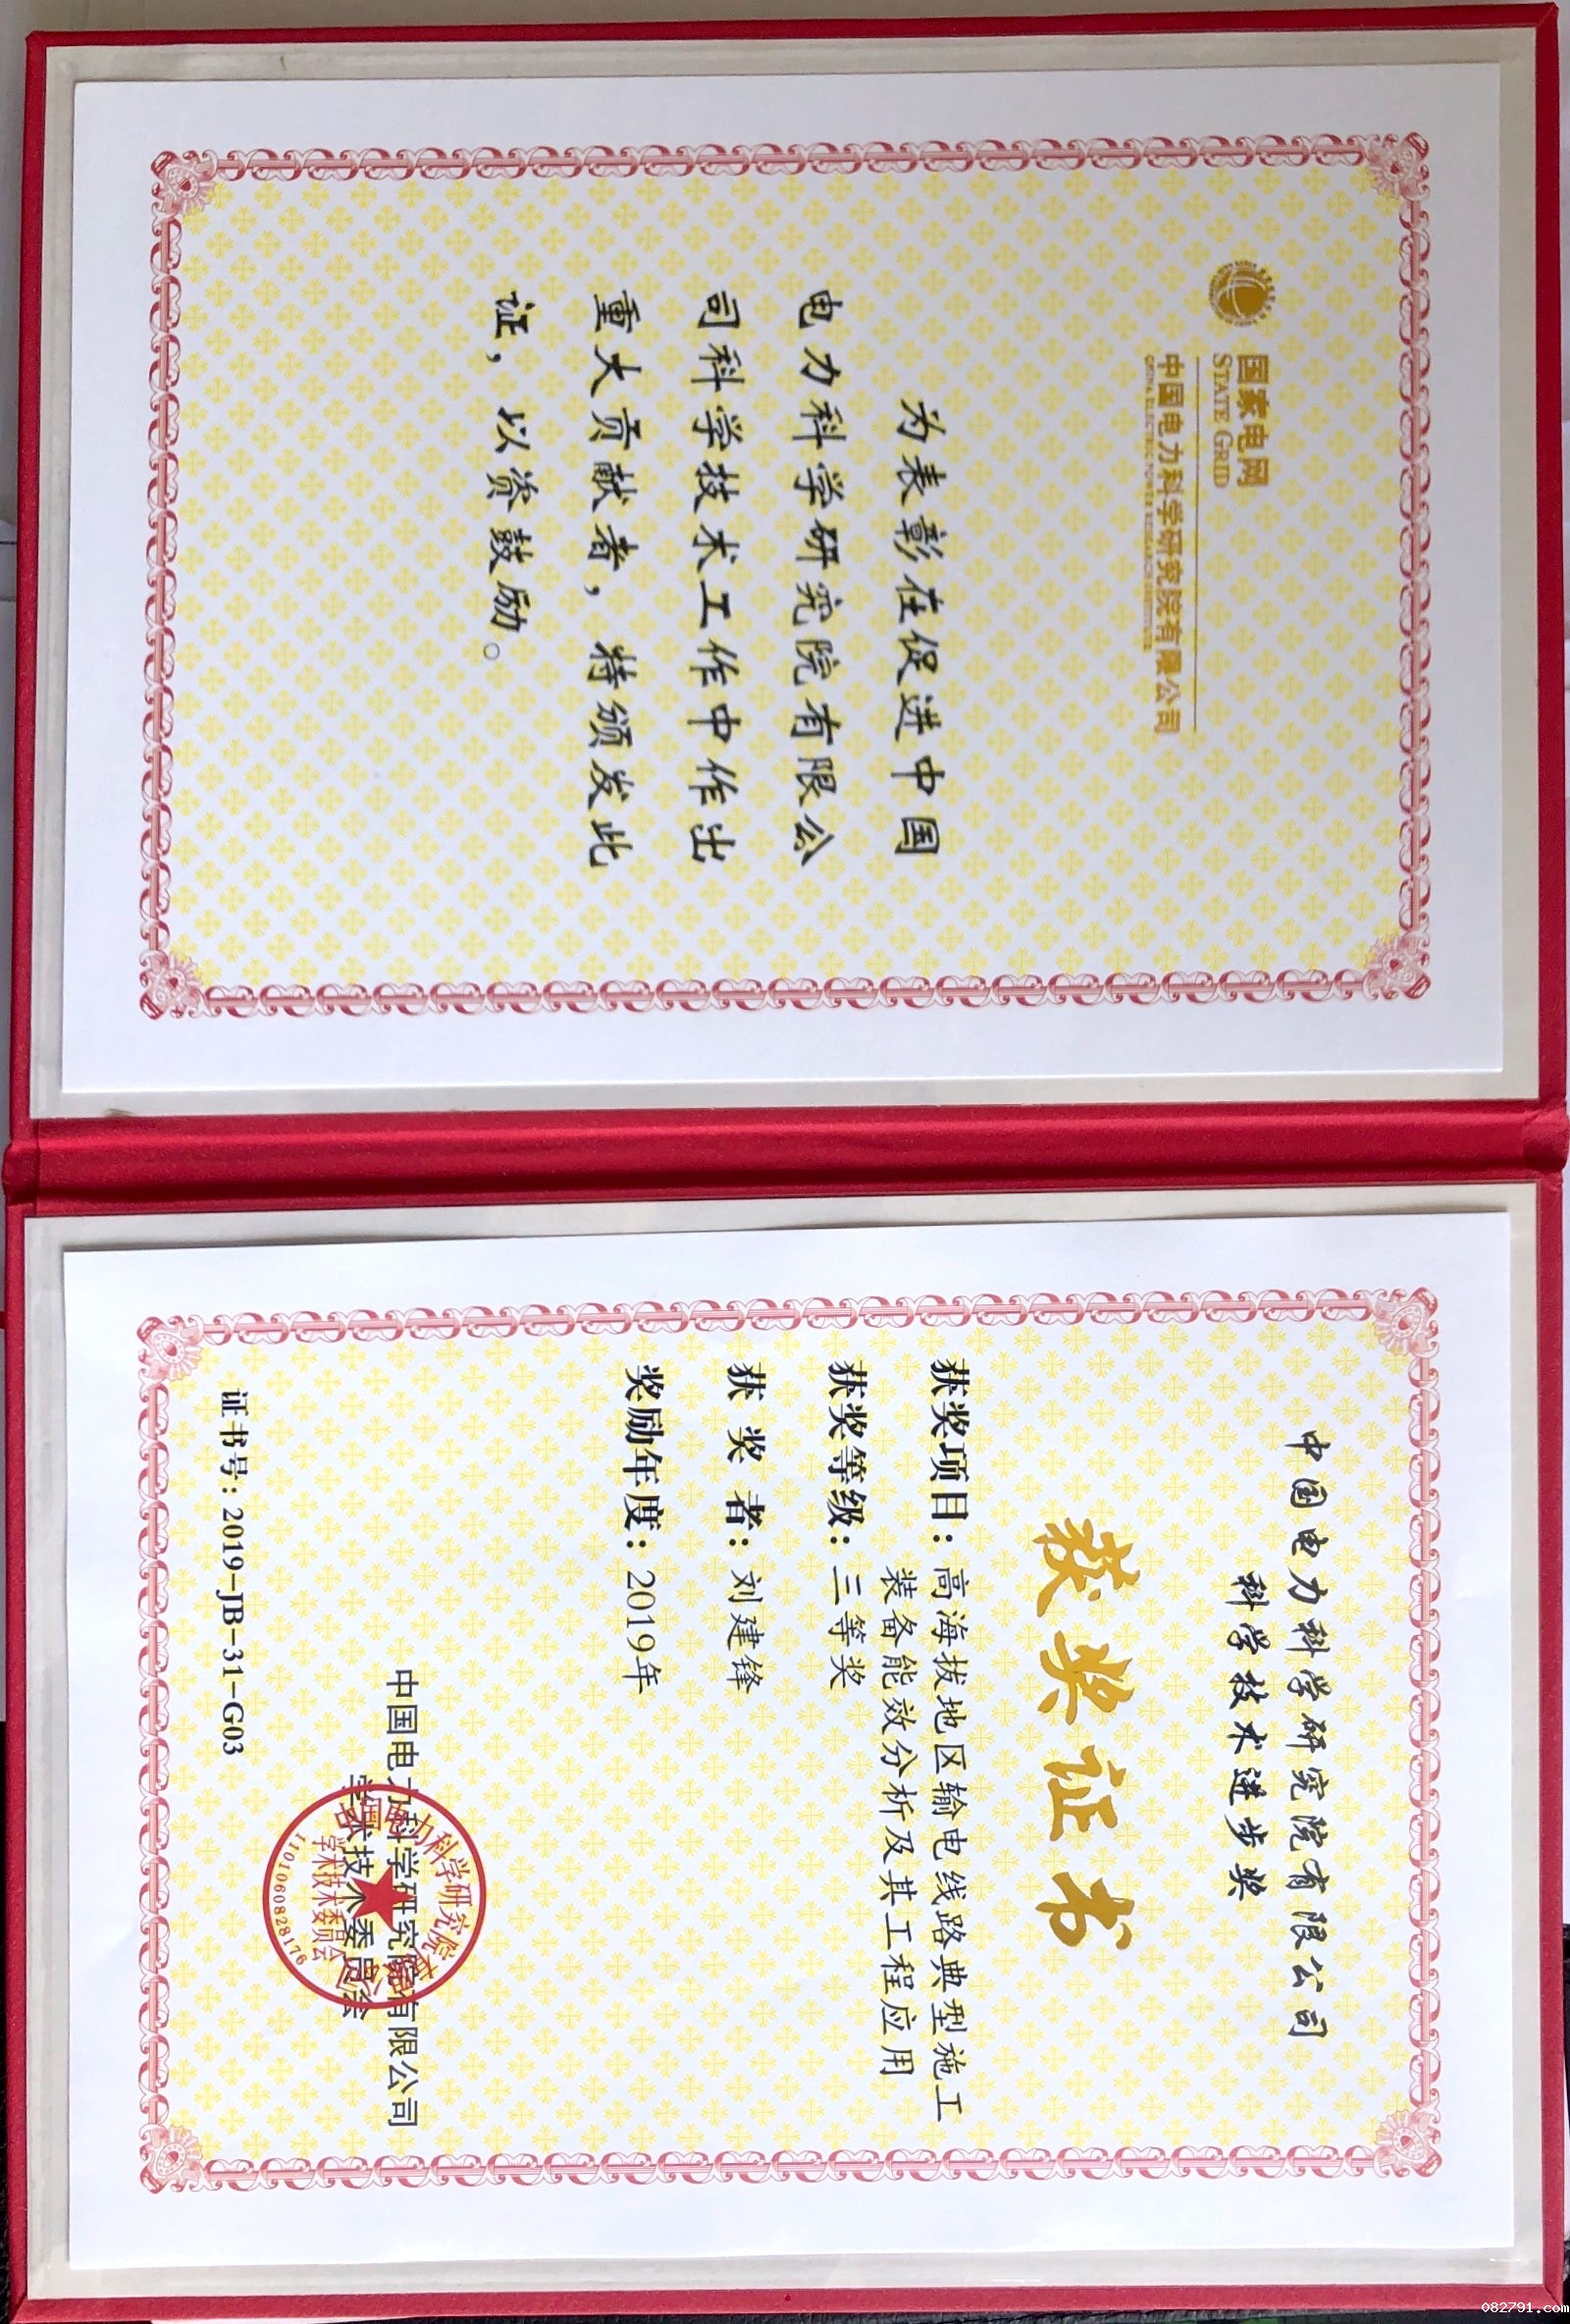 国家电网
STATE GRID
中国电力科学研究院有限公司
CHINA ELECTRIC POWER RESEARCH INSTITUTE
为表彰在促进中国
电力科学研究院有限公
司科学技术工作中作出
重大贡献者，特颁发此
证，以资鼓励。
中国电力科学研究院有限公司
科学技术进步奖
获奖证书
获奖项目：高海拔地区输电线路典型施工
装备能效分析及其工程应用
获奖等级：三等奖
获奖者：刘建锋
奖励年度：2019年
中国电力科学研究院有限公司
学术技术委员会
学术技术委员会
1101060828176
证书号：2019-JB-31-G03
082791.com